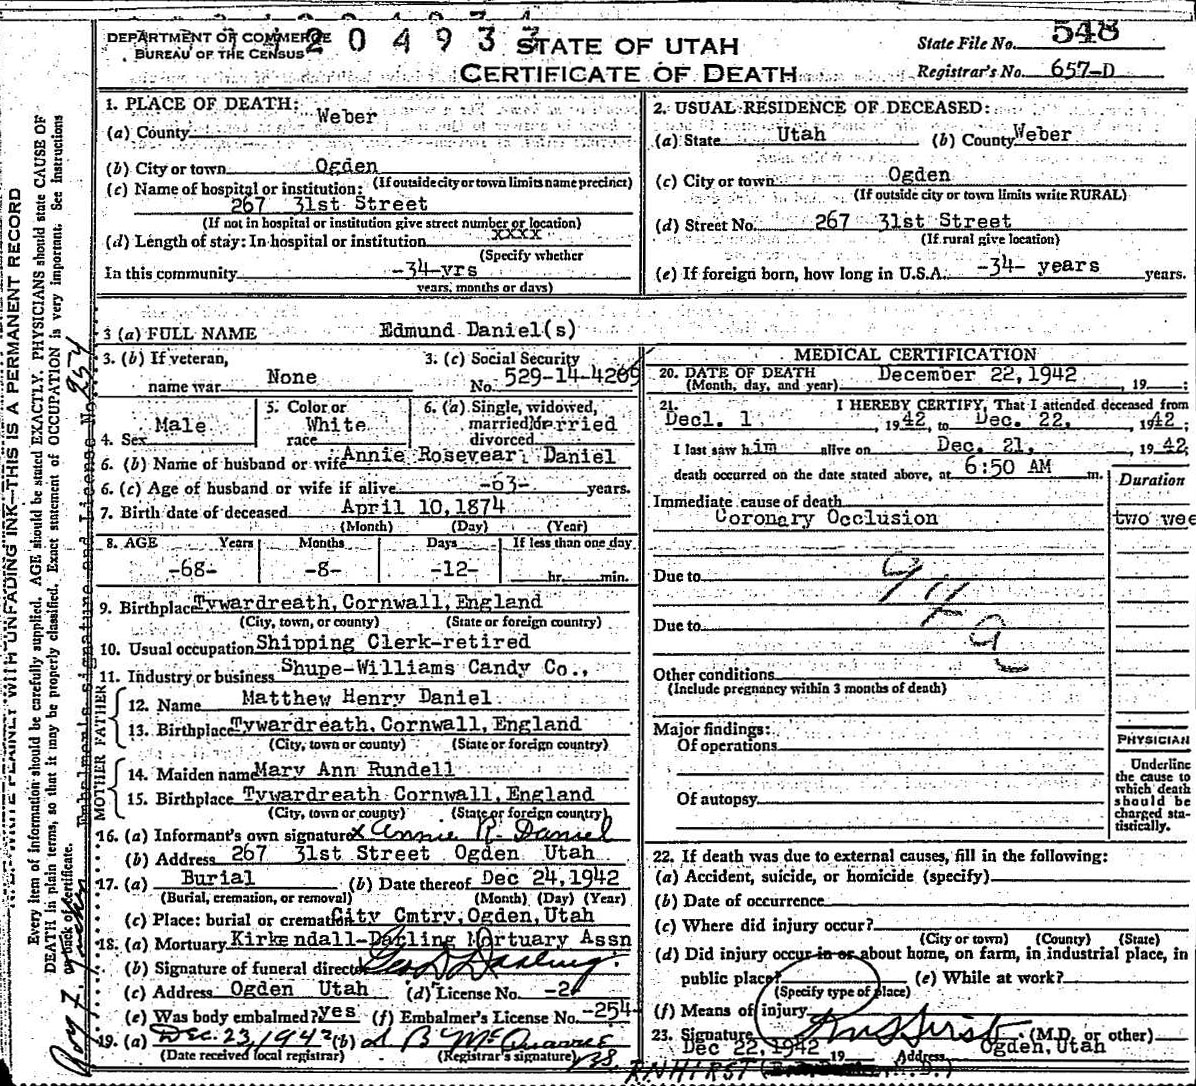 DEPARTMENT OF COMMERCE
BUREAU OF THE CENSUS
2 0 4 9 3
STATE OF UTAH
CERTIFICATE OF DEATH
State File No. 548
Registrar's No. 657-D
1. PLACE OF DEATH:
(a) County Weber
(b) City or town Ogden
(If outside city or town limits name precinct)
(c) Name of hospital or institution:
267 31st Street
(If not in hospital or institution give street number or location)
(d) Length of stay: In hospital or institution xxxx
(Specify whether
In this community -34-yrs
years, months or days)
2. USUAL RESIDENCE OF DECEASED:
(a) State Utah (b) County Weber
(c) City or town Ogden
(If outside city or town limits write RURAL)
(d) Street No. 267 31st Street
(If rural give location)
(e) If foreign born, how long in U.S.A. -34- years years.
3 (a) FULL NAME Edmund Daniel(s)
3. (b) If veteran,
name war None
3. (c) Social Security
No. 529-14-4269
4. Sex Male
5. Color or
race White
6. (a) Single, widowed,
married, or
divorced
6. (b) Name of husband or wife Annie Rosevear Daniel
6. (c) Age of husband or wife if alive -63- years.
7. Birth date of deceased April 10, 1874
(Month) (Day) (Year)
8. AGE Years Months Days If less than one day
-68- -8- -12- hr. min.
9. Birthplace Tywardreath, Cornwall, England
(City, town, or county) (State or foreign country)
10. Usual occupation Shipping Clerk-retired
11. Industry or business Shupe-Williams Candy Co.,
FATHER
12. Name Matthew Henry Daniel
13. Birthplace Tywardreath, Cornwall, England
(City, town or county) (State or foreign country)
MOTHER
14. Maiden name Mary Ann Rundell
15. Birthplace Tywardreath Cornwall, England
(City, town or county) (State or foreign country)
16. (a) Informant's own signature x Annie R. Daniel
(b) Address 267 31st Street Ogden Utah
17. (a) Burial (b) Date thereof Dec 24, 1942
(Burial, cremation, or removal) (Month) (Day) (Year)
(c) Place: burial or cremation City Cmtry, Ogden, Utah
18. (a) Mortuary Kirkendall-Darling Mortuary Assn
(b) Signature of funeral director Geo D Darling.
(c) Address Ogden Utah (d) License No. -2
(e) Was body embalmed? yes (f) Embalmer's License No. -254-
19. (a) Dec. 23, 1942 (b) L B McQuarrie
(Date received local registrar) (Registrar's signature)
MEDICAL CERTIFICATION
20. DATE OF DEATH
(Month, day, and year) December 22, 1942, 19 ;
21. I HEREBY CERTIFY, That I attended deceased from
Decl. 1, 1942, to Dec. 22, 1942;
I last saw him alive on Dec. 21, 1942;
death occurred on the date stated above, at 6:50 AM m.
Duration
Immediate cause of death
Coronary Occlusion two wee
Due to
94
Due to
a
Other conditions
(Include pregnancy within 3 months of death)
Major findings:
Of operations
Of autopsy
PHYSICIAN
Underline
the cause to
which death
should be
charged sta-
tistically.
22. If death was due to external causes, fill in the following:
(a) Accident, suicide, or homicide (specify)
(b) Date of occurrence
(c) Where did injury occur?
(City or town) (County) (State)
(d) Did injury occur in or about home, on farm, in industrial place, in
public place? (e) While at work?
(Specify type of place)
(f) Means of injury
23. Signature RN Hirst (M.D. or other)
Dec 22, 1942 19 Address Ogden, Utah
R.N HIRST M.D.)
WRITE PLAINLY WITH UNFADING INK—THIS IS A PERMANENT RECORD
Every item of information should be carefully supplied. AGE should be stated EXACTLY. PHYSICIANS should state CAUSE OF
DEATH in plain terms, so that it may be properly classified. Exact statement of OCCUPATION is very important. See Instructions
on back of certificate.
Embalment's signature and License No. 254